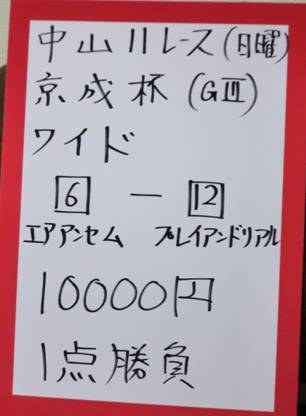 中山11レース(日曜)
京成杯(GⅢ)
ワイド
6 ― 12
エアアンセム プレイアンドリアル
10000円
1点勝負